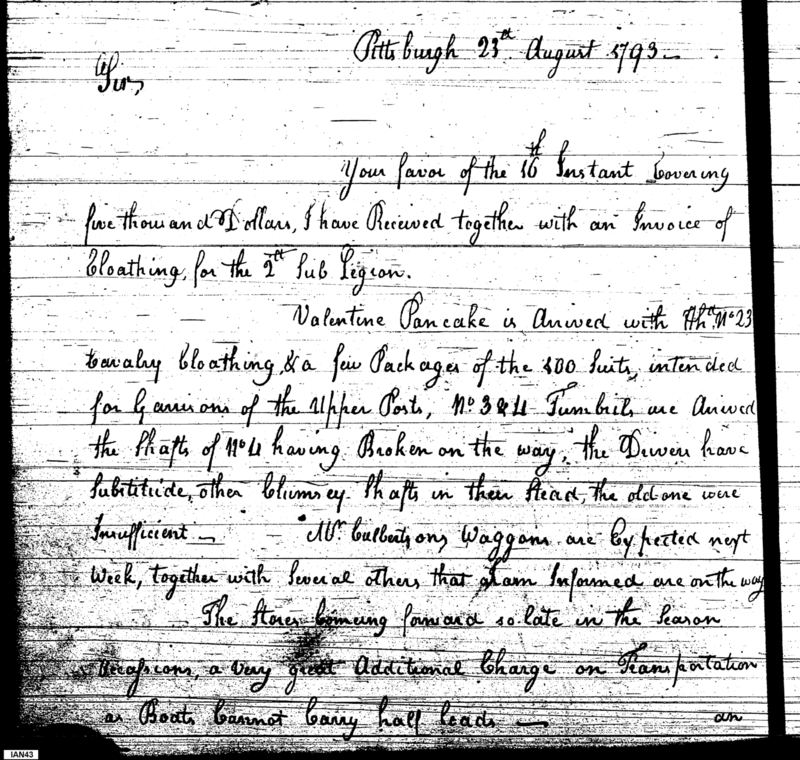 Pittsburgh 23th August 1793 -
Sir,
Your favor of the 16th Instant Covering
five thousand Dollars, I have Received together with an Invoice of
Cloathing, for the 2d Sub Legion.
Valentine Pancake is Arrived with No 23
Cavalry Cloathing, & a few Packages of the 800 Suits, intended
for Garrisons of the Upper Posts, No 3 & 4 Tumbrils are Arived
the Shafts of No 4 having Broken on the way, the Drivers have
Substitude, other Clumsey Shafts in their Stead, the old one were
Insufficient - Mr Culbertsons Waggons are Expected next
Week, together with Several others that I am Informed are on the way
The Stores Comeing forward so late in the Season
Occassions, a Very great Additional Charge on Transportation
as Boats Cannot Carry half loads - an
IAN43